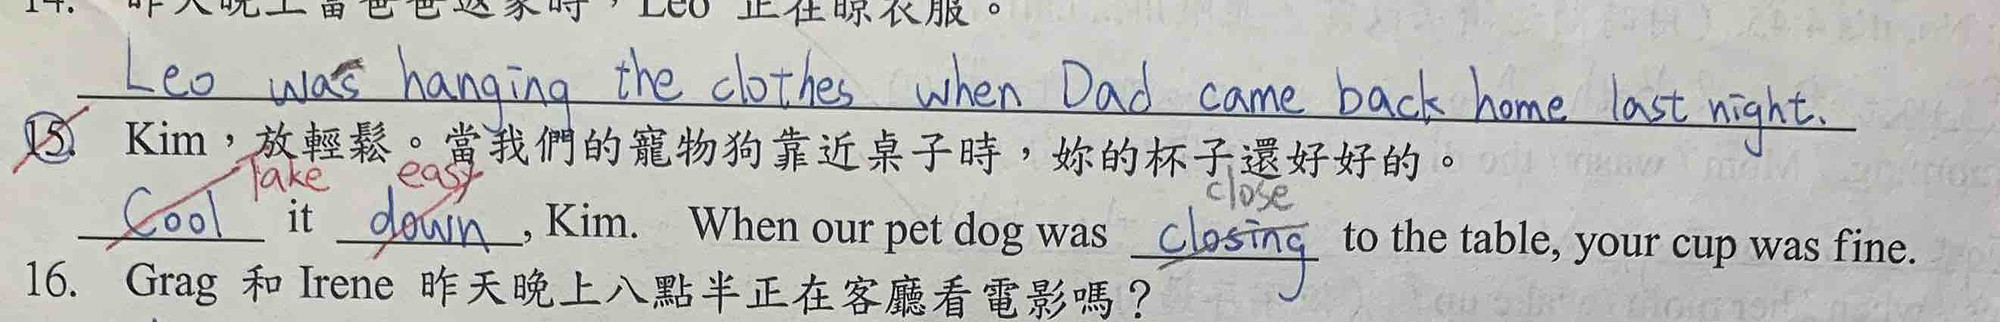 14. 昨天晚上當爸爸返家時，Leo 正在晾衣服。
Leo was hanging the clothes when Dad came back home last night.
15. Kim，放輕鬆。當我們的寵物狗靠近桌子時，妳的杯子還好好的。
Take easy close
Cool it down, Kim. When our pet dog was closing to the table, your cup was fine.
16. Grag 和 Irene 昨天晚上八點半正在客廳看電影嗎？